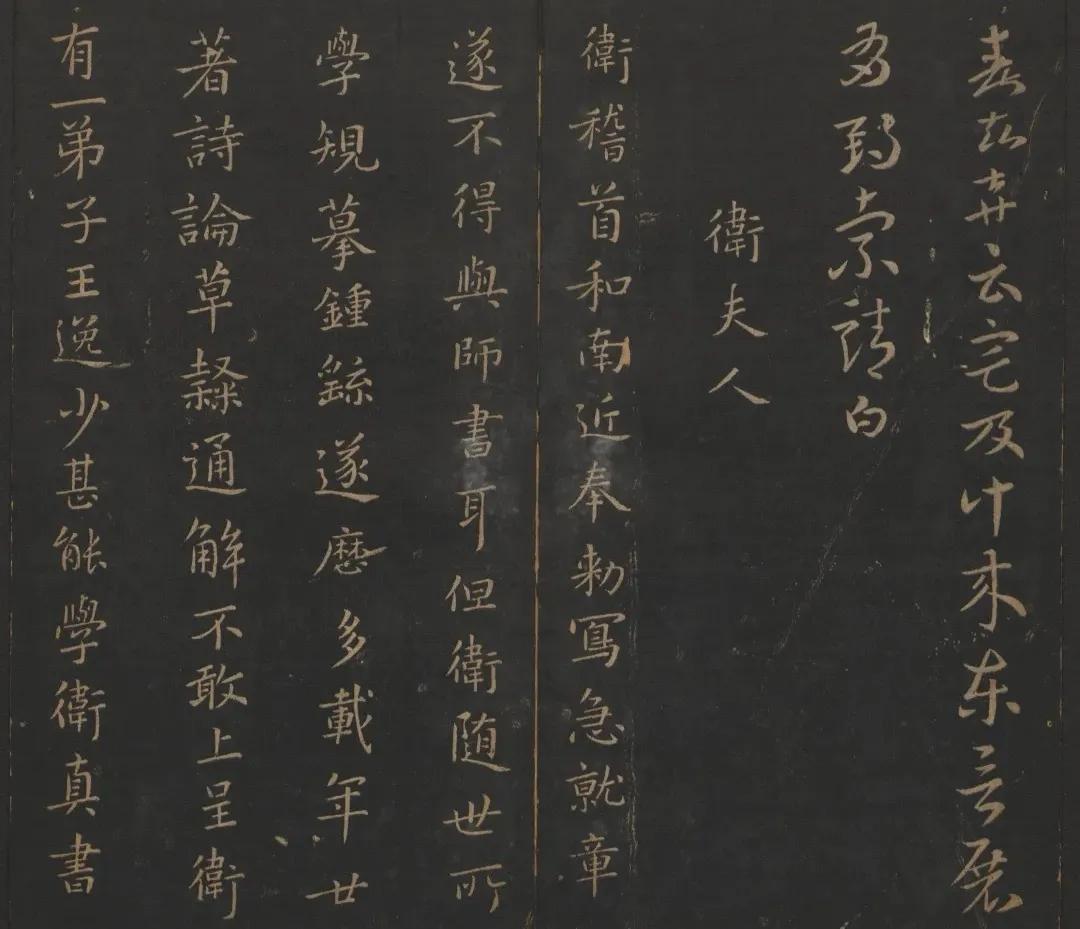 云宅及 来 展
白
衛夫人
衛稽首和南近奉勑寫急就章
遂不得與師書耳但衛随世所
學規摹鍾繇遂歷多載年廿
著詩論草隸通解不敢上呈衛
有一弟子王逸少甚能學衛真書